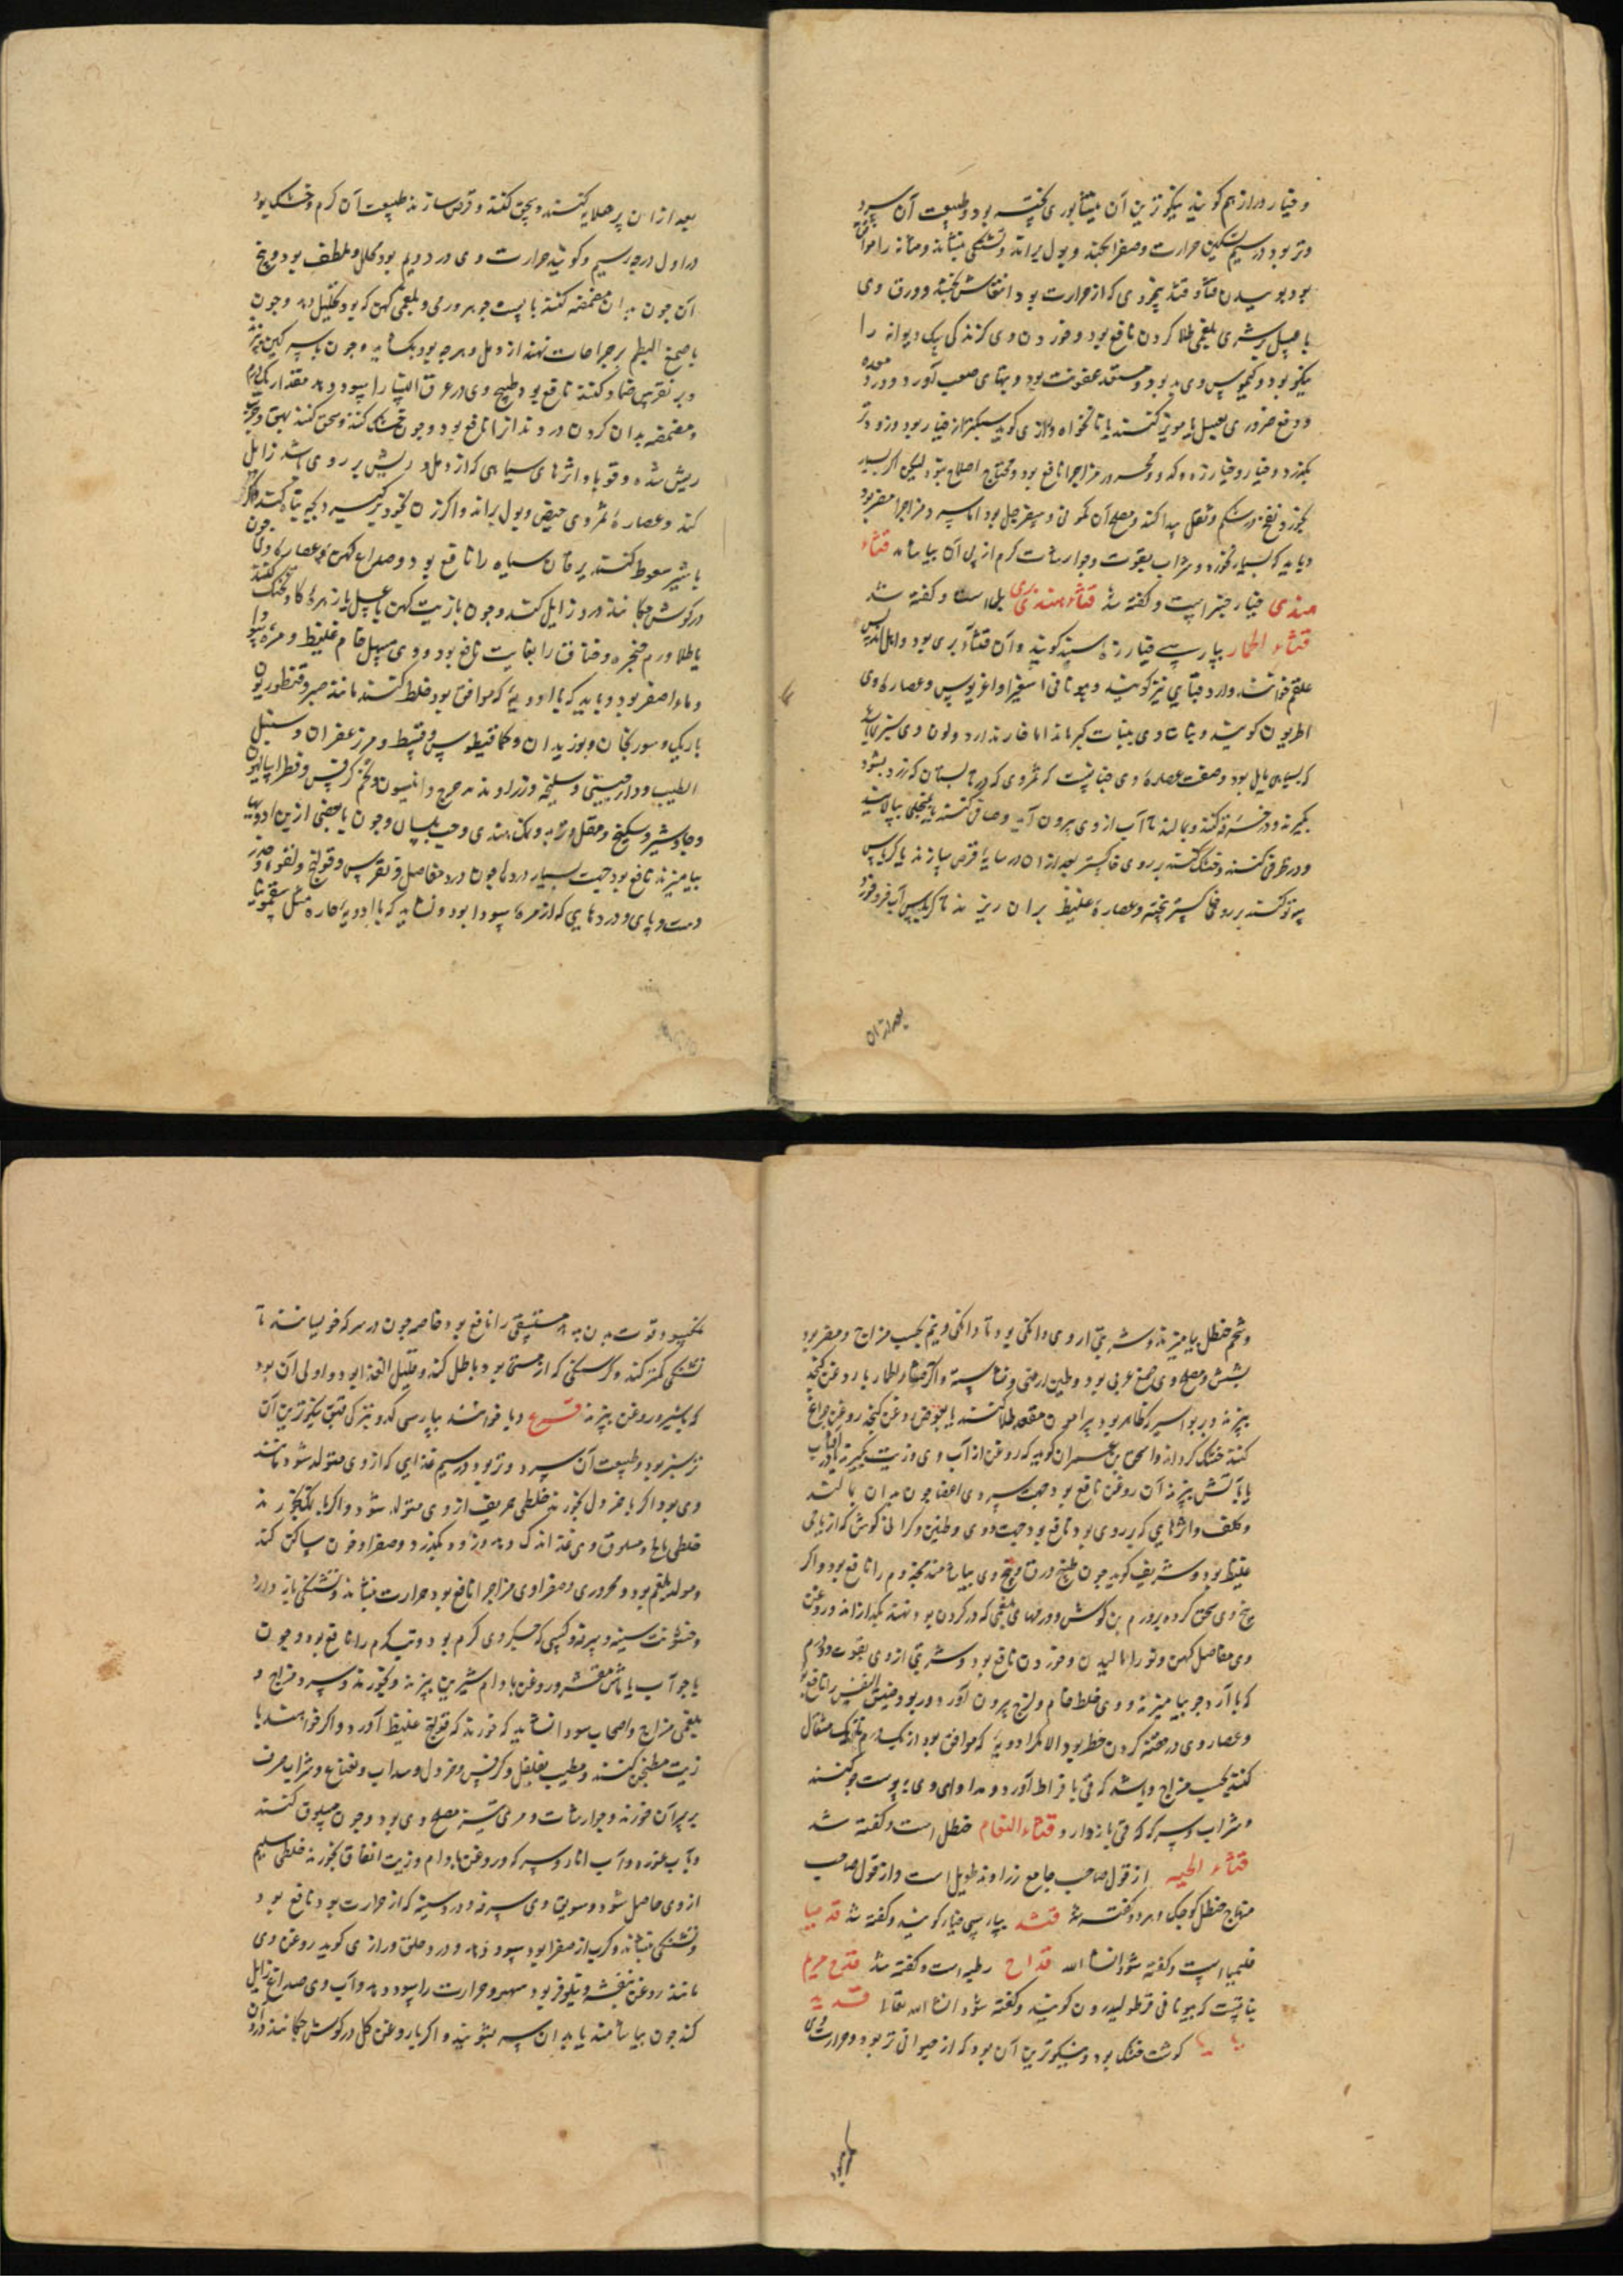 و خیار دراز هم گویند نیکوترین آن نیشابوری پخته بود و طبیعت آن سرد
و تر بود در سیم تسکین حرارت و صفرا بکند و بول براند و تشنگی بنشاند و مثانه را موافق
بود بوییدن قثا و قثد محروری که از حرارت بود انتعاش بخشد و ورق وی
با عسل بر شری بلغمی طلا کردن نافع بود و خوردن وی گزندگی سگ دیوانه را
نیکو بود و کیموس وی بد بود و مستعد عفونت بود و تبهای صعب آورد و درد معده
و دفع ضرر وی بعسل یا مویز کنند یا نانخواه و رازی گوید سبکتر از خیار بود و زودتر
بگذرد و خیار و خیارزه و کدو محرور مزاج را نافع بود و محتاج اصلاح نبود لیکن اگر بسیار
بخورد نفخ در شکم و ثقل پیدا کند و مصلح آن کمونی و سفرجلی بود اما سرد مزاج را مضر بود
و باید که بسیار نخورد و شراب بقوت و جوارشات گرم از پی آن بیاشامد قثاء
هندی خیار چنبر است و گفته شد قثاء هندی بری بل است و گفته شد
قثاء الحمار بپارسی خیارزه سپید گویند و آن قثاء بری بود و اهل اندلس
علقم خوانند و ارد قیای نیز گویند و بیونانی اسفیرا و اغریوس و عصاره وی
اطریون گویند و نبات وی بنبات کبر ماند اما خار ندارد و لون وی سبز بود
که بسیاهی مایل بود و صفت عصاره وی چنانست که ثمر وی که در تابستان که زرد بشود
بگیرند و در خرقه کنند و بمالند تا آب از وی بیرون آید و صافی کنند بمنخلی بپالایند
و در ظرفی کنند و خشک کنند بر روی خاکستر بعد از آن در سایه قرص سازند یا کرباس
پرتو کنند بر روی خاکستر بیخته و عصاره غلیظ بر آن ریزند تا کرباس آب فرو خورد
بعد از آن
بعد از آن بر صلایه کنند و سحق کنند و قرص سازند طبیعت آن گرم و خشک بود
در اول درجه سیم و گویند حرارت وی در دویم بود محلل و ملطف بود و بیخ
آن چون بدان مضمضه کنند با پست جو بر ورمی بلغمی کهن که بود تحلیل دهد و چون
با صمغ البطم بر جراحات نهند از دمل و هرچه بود بگشاید و چون با سرکه بپزند
و بر نقرس ضماد کنند نافع بود و طبیخ وی در عرق النسا را سود دهد مقدار یکدرم
و مضمضه بدان کردن درد دندان را نافع بود و چون خشک کنند و سحق کنند بهق و جرب
ریش شده و قوبا و اثرهای سیاهی که از دمل و ریش بر روی باشد زایل
کند و عصاره ثمر وی حیض و بول براند و اگر زن بخود برگیرد بچه تباه کند و اگر
با شیر سعوط کنند یرقان سیاه را نافع بود و صداع کهن و عصاره وی چون
در گوش چکانند درد زایل کند و چون با زیت کهن یا عسل یا زهره گاو تحنک کنند
یا طلا ورم حنجره و خناق را بغایت نافع بود و وی مسهل خام غلیظ و مره سودا
و ماء اصفر بود و باید که با ادویه که موافق بود خلط کنند مانند صبر و قنطوریون
باریک و سورنجان و بوزیدان و کمافیطوس و قسط و مر و زعفران و سنبل
الطیب و دارچینی و سلیخه و زراوند مدحرج و انیسون و تخم کرفس و فطراسالیون
و جاوشیر و سکبینج و مقل و تربد و نمک هندی و حب بلسان و چون با بعضی ازین ادویها
بیامیزند نافع بود جهت بسیار دردها چون درد مفاصل و نقرس و قولنج و لقوه و خدر
دست و پای و دردهایی که از مره سودا بود و نشاید که با ادویه حاره مثل سقمونیا
و شحم حنظل بیامیزند و شربتی از وی دانگی بود تا دانگی و نیم بحسب مزاج و مضر بود
بشش و مصلح وی صمغ عربی بود و طین ارمنی و نشاسته و اگر قثاء الحمار با روغن کنجد
بپزند و بر بواسیر که ظاهر بود پیرامون مقعد طلا کنند یا بعوض روغن کنجد روغن چراغ
کنند خشک گرداند و اسحق بن عمران گوید که روغن از آب وی و زیت بگیرند در آفتاب
یا بآتش بپزند آن روغن نافع بود جهت سردی اعضا چون بدان بمالند
و کلف و اثرهایی که بر روی بود نافع بود جهت دوی و طنین و گرانی گوش که از ریاحی
غلیظ بود و شریف گوید چون طبیخ ورق و بیخ وی بیاشامند مجذوم را نافع بود و اگر
بیخ وی سحق کرده بر ورم بن گوش و ورمهای بلغمی که در گردن بود نهند بگدازاند و روغن
وی مفاصل کهن و نو را مالیدن و خوردن نافع بود و شربتی از وی بقوت دو درم
که با آرد جو بیامیزند و وی خلط خام و لزج بیرون آورد و ربو و ضیق النفس را نافع بود
و عصاره وی در حقنه کردن خطر بود الا که با ادویه که موافق بود از یکدرم تا یک مثقال
کنند بحسب مزاج و باشد که قی بافراط آورد و مداوای وی بپوست جو کنند
و شراب و سرکه که قی باز دارد قثاء النعام حنظل است و گفته شد
قثاء الحیه از قول صاحب جامع زراوند طویل است و از قول صاحب
منهاج حنظل کوچک و هر دو گفته شد قثد بپارسی خیار گویند و گفته شد قدمیا
قلیمیا است و گفته شود انشاالله قداح رطبه است و گفته شد قدح مریم
نباتیست که بیونانی قوطولیدون گویند و گفته شود انشاالله تعالی قدید
گوشت خشک بود و نیکوترین آن بود که از حیوانی تر بود و حرارت وی
مکسود و قوت بدن دهد مستسقی را نافع بود خاصه چون در سرکه خوبیانند تا
تشنگی کمتر کند و گرسنگی که از مستی بود باطل کند و قلیل الغذا بود و اولی آن بود
که با شیر و روغن بپزند قرع دبا خوانند بپارسی کدو نیز گویند نیکوترین آن
تر سبز بود و طبیعت آن سرد و تر بود در سیم غذایی که از وی متولد شود مانند
وی بود اگر با خردل بخورند خلطی حریف از وی متولد شود و اگر با نمک بخورند
خلطی مالح و مسلوق وی غذا اندک دهد و زود بگذرد و صفرا و خون ساکن کند
و مولد بلغم بود و محروری و صفراوی مزاج را نافع بود حرارت بنشاند و تشنگی باز دارد
و خشونت سینه و سرفه و کسی که جگر وی گرم بود و تب گرم را نافع بود و چون
با جو آب یا ماش مقشر و روغن بادام شیرین بپزند و بخورند و سرد مزاج و
بلغمی مزاج و اصحاب سودا نشاید که خورند که قولنج غلیظ آورد و اگر خواهند با
زیت مطجن کنند و مطیب بفلفل و کرفس و خردل و سداب و نعناع و شراب صرف
بر سر آن خورند و جوارشات و مری نیز مصلح وی بود و چون مسلوق کنند
و بآب غوره و آب انار و سرکه و روغن بادام و زیت انفاق بخورند خلطی سلیم
از وی حاصل شود و سویق وی سرفه و درد سینه که از حرارت بود نافع بود
و تشنگی بنشاند و کرب از صفرا بود سود دهد و درد حلق و رازی گوید روغن وی
مانند روغن بنفشه و نیلوفر بود سهر و حرارت را سود دهد و آب وی صداع زایل
کند چون بیاشامند یا بدان سر بشویند و اگر با روغن گل در گوش چکانند درد آن